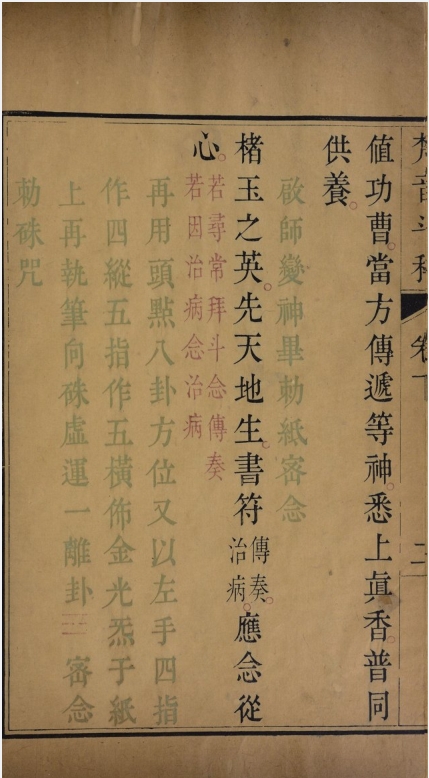 梵音斗科 卷下 二
值功曹。當方傳遞等神。悉上眞香。普同
供養。
啟師變神畢勅紙密念
楮玉之英。先天地生。書符傳奏。治病。應念從
心。若尋常拜斗念傳奏若因治病念治病
再用頭點八卦方位又以左手四指
作四縱五指作五橫佈金光炁于紙
上再執筆向硃虛運一離卦☲密念
勅硃咒